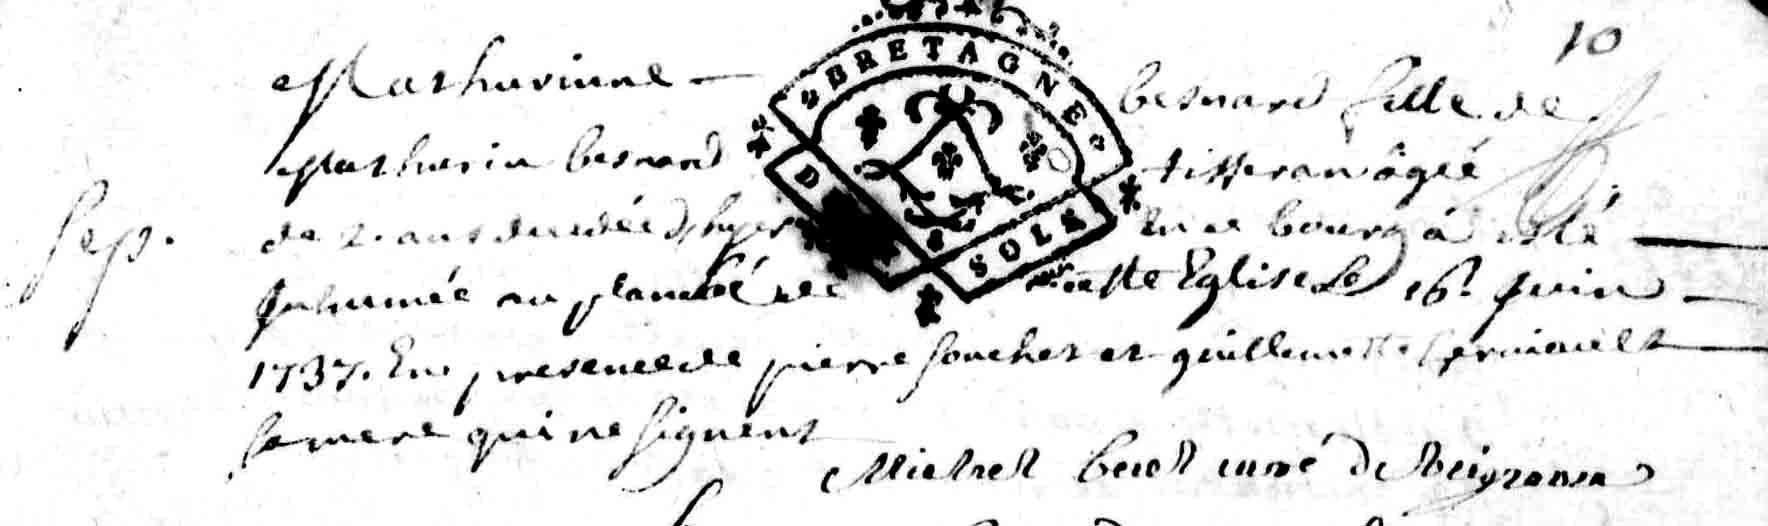 10
BRETAGNE
Mathurinne — besnard fille de
Mathurin besnard tisseran âgée
Sep. de 2. ans decedée d'hyer en ce bourg a esté —
Inhumée au placistre de cette Eglise Le 16e. Juin —
1737. En presence de pierre souchet et guillemette —
sa mere qui ne signent
D SOLS
Michel curé de